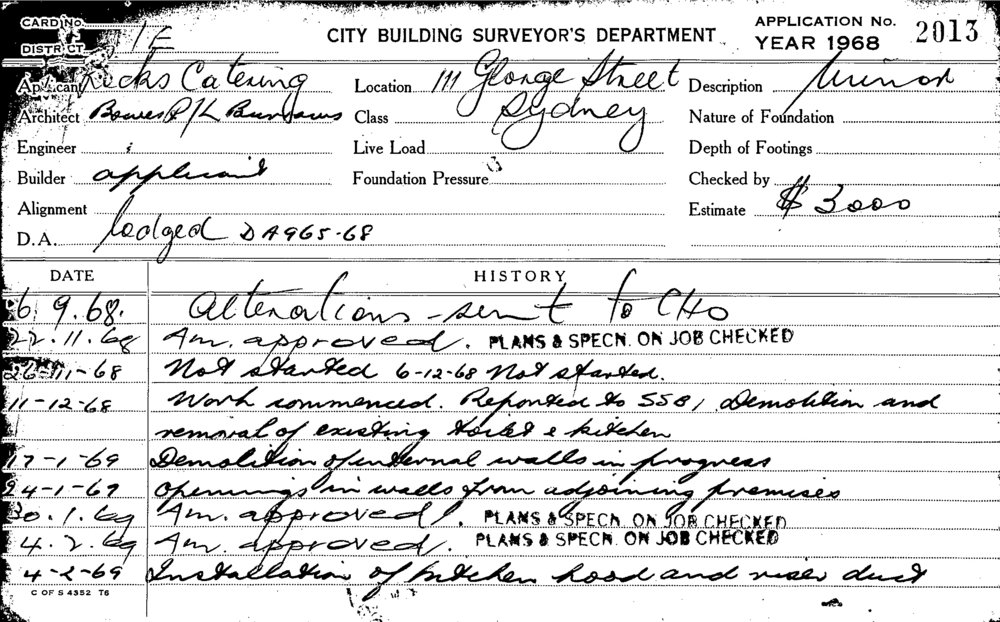 CARD No.
DISTRICT 1E
CITY BUILDING SURVEYOR'S DEPARTMENT
APPLICATION No. 2013
YEAR 1968
Applicant Ricks Catering Location 111 George Street Sydney Description Minor
Architect Bowes Burrows Class Nature of Foundation
Engineer Live Load Depth of Footings
Builder applicant Foundation Pressure Checked by
Alignment Estimate $ 3000
D.A. lodged DA965-68
DATE HISTORY
6. 9. 68. Alterations - sent to CHO
22. 11. 68 Am. approved. PLANS & SPECN. ON JOB CHECKED
26-11-68 Not started 6-12-68 Not started.
11-12-68 Work commenced. Reported to SSB, Demolition and
removal of existing toilet & kitchen
17-1-69 Demolition of internal walls in progress
24-1-69 Openings in walls from adjoining premises
30. 1. 69 Am. approved. PLANS & SPECN. ON JOB CHECKED
4. 2. 69 Am. approved. PLANS & SPECN. ON JOB CHECKED
4-2-69 Installation of kitchen hood and riser duct
C OF S 4352 T6